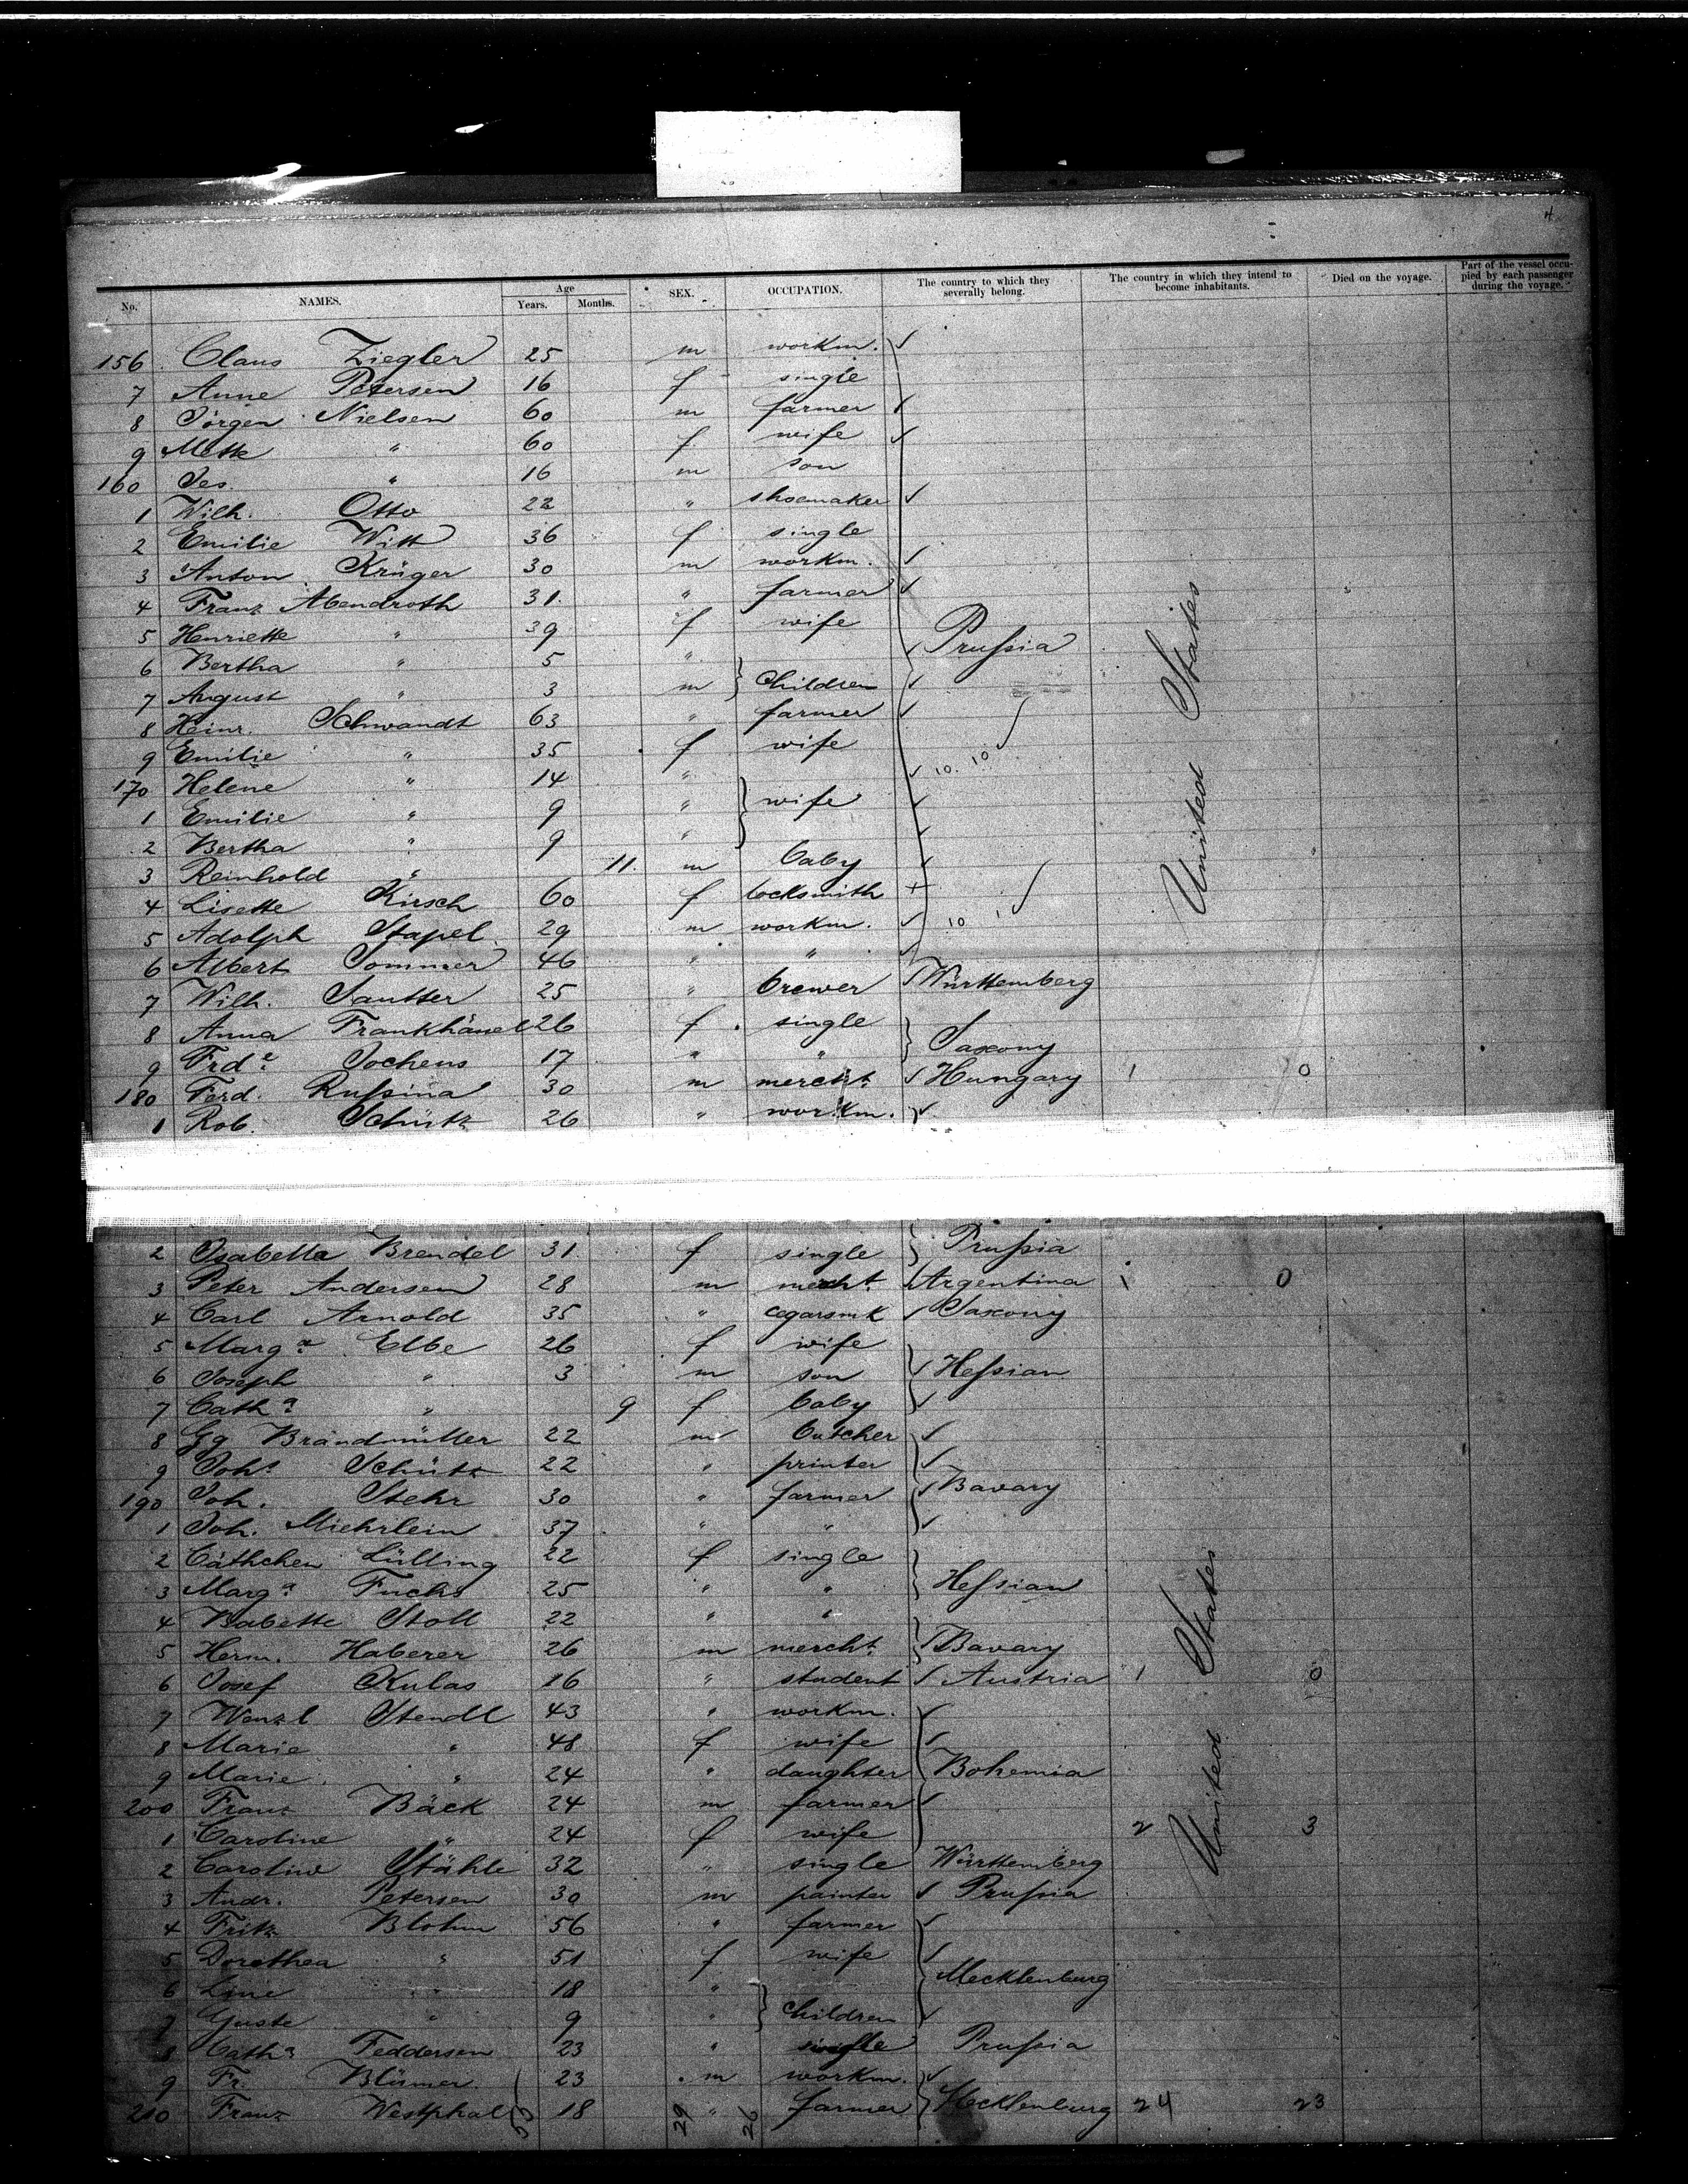 4
No. NAMES. Age Years. Months. SEX. OCCUPATION. The country to which they severally belong. The country in which they intend to become inhabitants. Died on the voyage. Part of the vessel occupied by each passenger during the voyage.
156 Claus Ziegler 25 m workm.
7 Anne Petersen 16 f single
8 Jörgen Nielsen 60 m farmer
9 Mette " 60 f wife
160 Jes. " 16 m son
1 Wilh. Otto 22 " shoemaker
2 Emilie Witt 36 f single
3 Anton Krüger 30 m workm.
4 Franz Abendroth 31. " farmer
5 Henriette " 39 f wife
6 Bertha " 5 " Prußia
7 August " 3 m Children
8 Heinr. Schwandt 63 " farmer
9 Emilie " 35 f wife
170 Helene " 14 " 10. 10
1 Emilie " 9 " wife
2 Bertha " 9 "
3 Reinhold " 11. m baby
4 Lisette Kirsch 60 f locksmith
5 Adolph Stapel 29 m workm. 10 1
6 Albert Sommer 46 " "
7 Wilh. Sautter 25 " brewer Württemberg
8 Anna Frankhänel 26 f single
9 Frd.e Jochens 17 " " Saxony
180 Ferd. Rußina 30 m mercht. Hungary 1 0
1 Rob. Schütz 26 " workm.
United States
2 Isabella Brendel 31. f single Prußia
3 Peter Andersen 28 m mercht. Argentina 1 0
4 Carl Arnold 35 " cegarsmk Saxony
5 Marg.a Elbe 26 f wife
6 Joseph " 3 m son Heßian
7 Cath.a " 9 f baby
8 Gg Brändmüller 22 m butcher
9 Joh.s Schütz 22 " printer
190 Joh. Stehr 30 " farmer Bavary
1 Joh. Miehrlein 37 " "
2 Cäthchen Lülling 22 f single
3 Marg.a Fuchs 25 " " Heßian
4 Babette Stoll 22 " "
5 Herm. Haberer 26 m mercht. Bavary
6 Josef Kulas 16 " student Austria 1 0
7 Wenzl Stendl 43 " workm.
8 Marie " 48 f wife
9 Marie " 24 " daughter Bohemia
200 Franz Bäck 24 m farmer
1 Caroline " 24 f wife 2 3
2 Caroline Stähle 32 " single Württemberg
3 Andr. Petersen 30 m painter Prußia
4 Fritz Blohm 56 " farmer
5 Dorothea " 51 f wife
6 Line " 18 " Mecklenburg
7 Guste " 9 " Children
8 Cath.a Feddersen 23 " single Prußia
9 Fr. Blümer 23 m workm.
210 Franz Westphal 18 " farmer Mecklenburg 24 23
55 29 26
United States